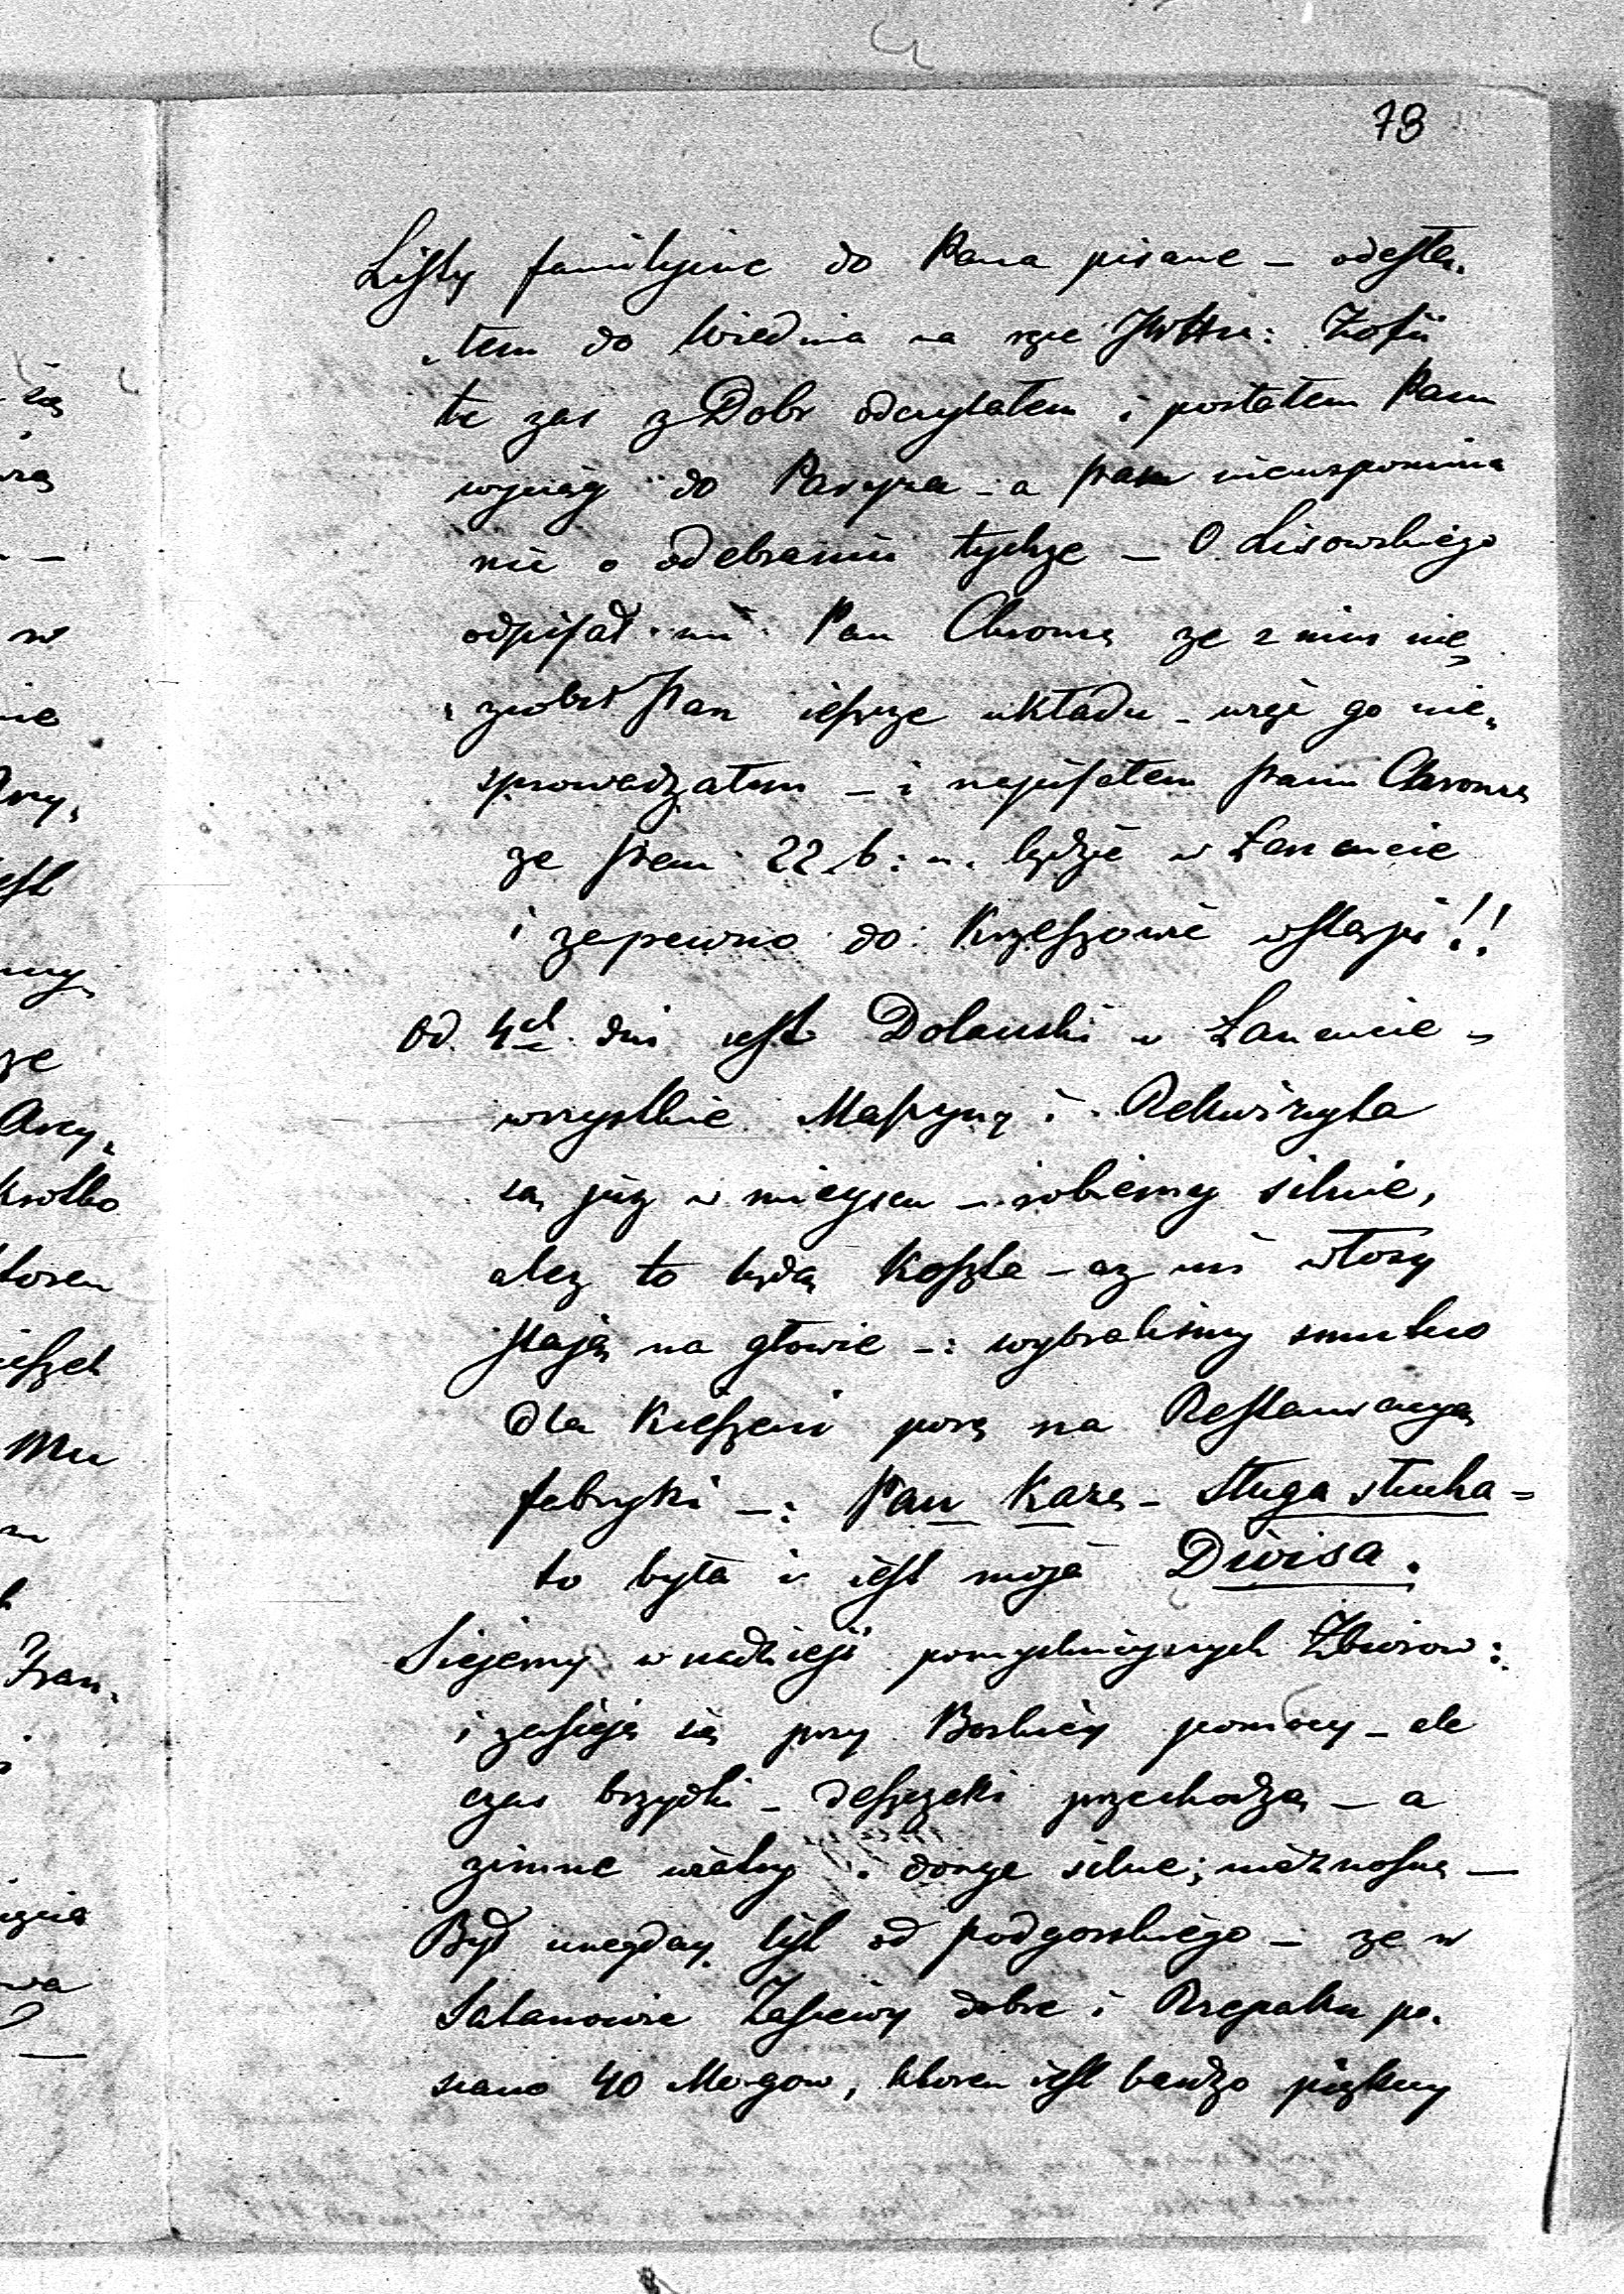 78
Listy familyine do Pana pisane – odesła„
„łem do Wiednia na ręce JWHr: Zofii
te zas z Dobr odczytałem i posłałem Panu
wyciąg do Paryża – a Pan niewspomina
nic o odebraniu tychże – O Lisowskiego
odpisał mi Pan Chromy ze z nim nie
zrobił Pan ieszcze układu – więc go nie„
sprowadzałem – i napisałem Panu Chromy
ze Pan 22 b: m. będzie w Łancucie
i zapewno do Krzeszowic wstąpi!!
Od 4ch dni iest Dolanski w Łancucie –
wszystkie Maszyny i Rekwizyta
są juz w mieyscu – robiemy silnie,
alez to będą Koszta – az mi włosy
stają na głowie –: wybralismy smutno
dla Kieszeni porę na Restauracyą
fabryki –: Pan Karze – Sługa słucha =
to była i iest moja Diwisa.
Siejemy w nadzieji pomyslnieyszych Zbiorow:
i zasieje się przy Boskiey pomocy – ale
czas brzydki – deszczyki przechodzą – a
zimne wiatry donye silne; nieznosne —
Był unegday list od Podgorskiego – ze w
Satanowie Zasiewy dobre i Rzepaku po„
siano 40 Morgow, ktoren iest bardzo piękny